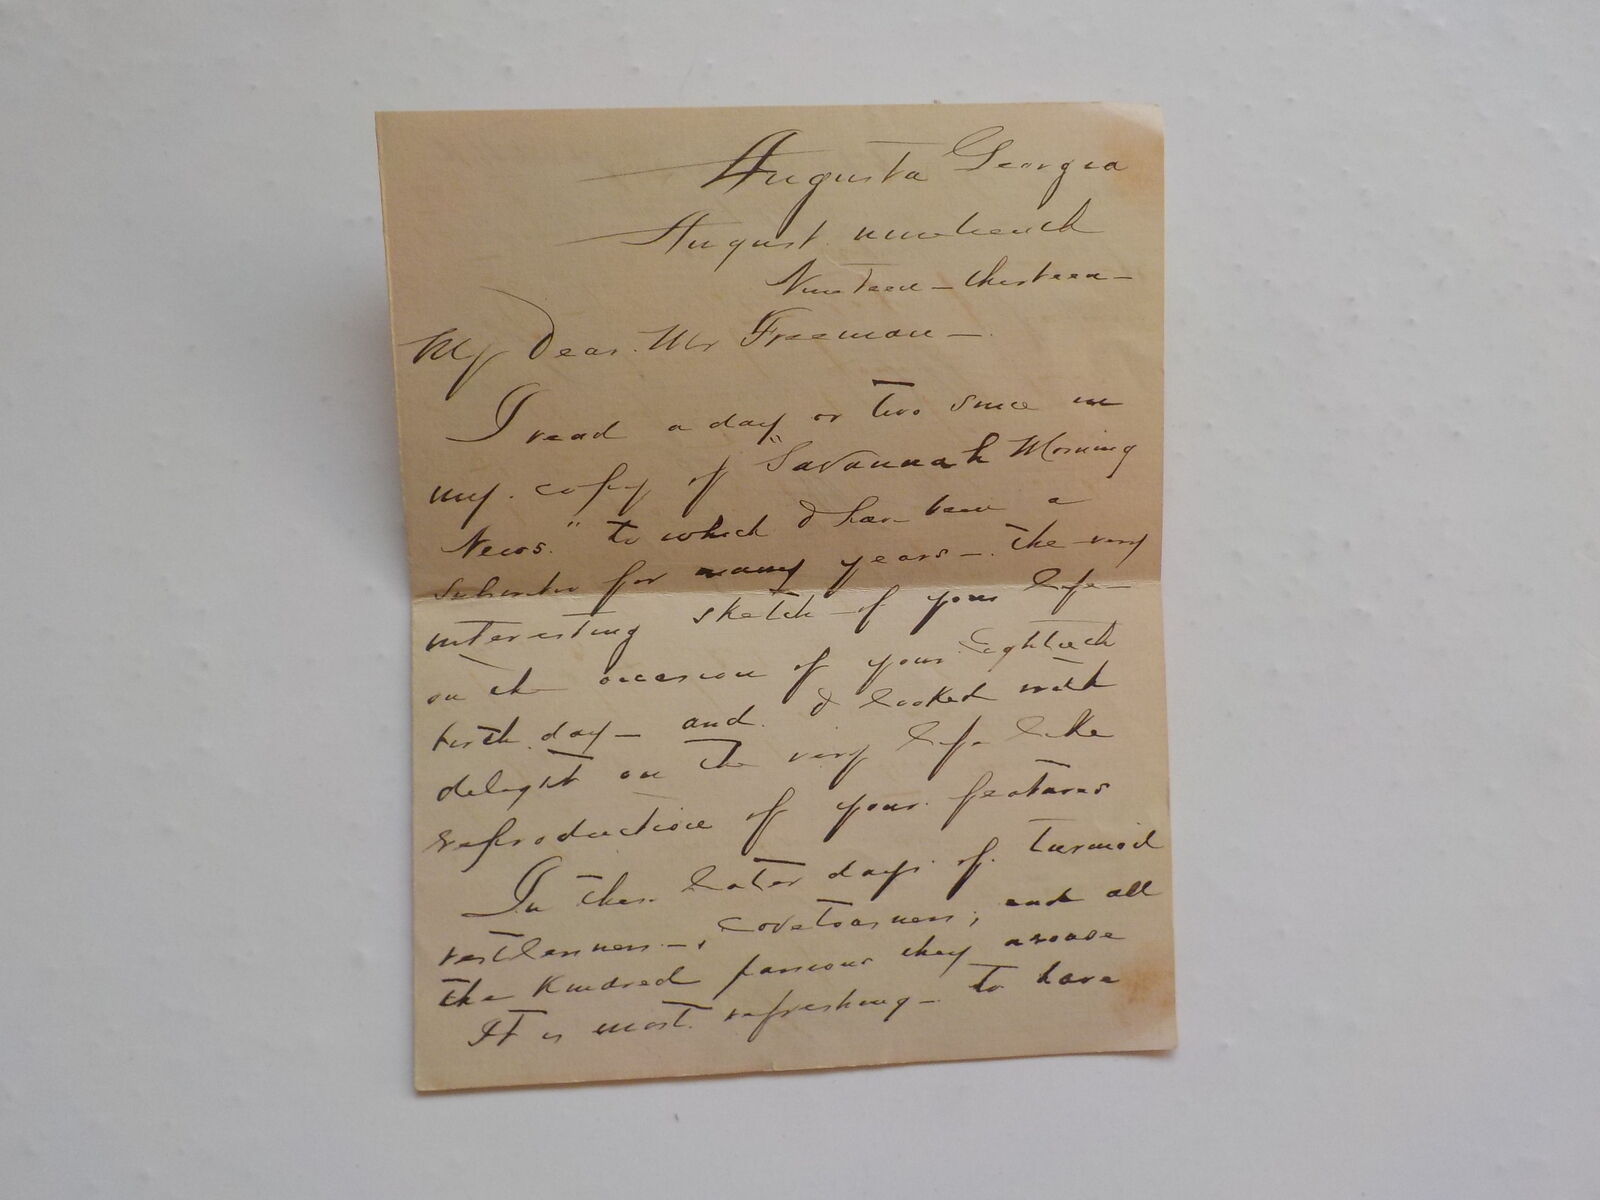 Augusta Georgia
August nineteenth
Nineteen - thirteen -
My Dear Mr Freeman -
I read a day or two since in
my copy of "Savannah Morning
News." to which I have been a
subscriber for many years - The very
interesting sketch of your life -
on the occasion of your Eightieth
birth day - and I looked with
delight on the very life like
reproduction of your features
In these later days of turmoil
restlessness -, covetousness, and all
the Kindred passions they arouse
It is most refreshing - to have